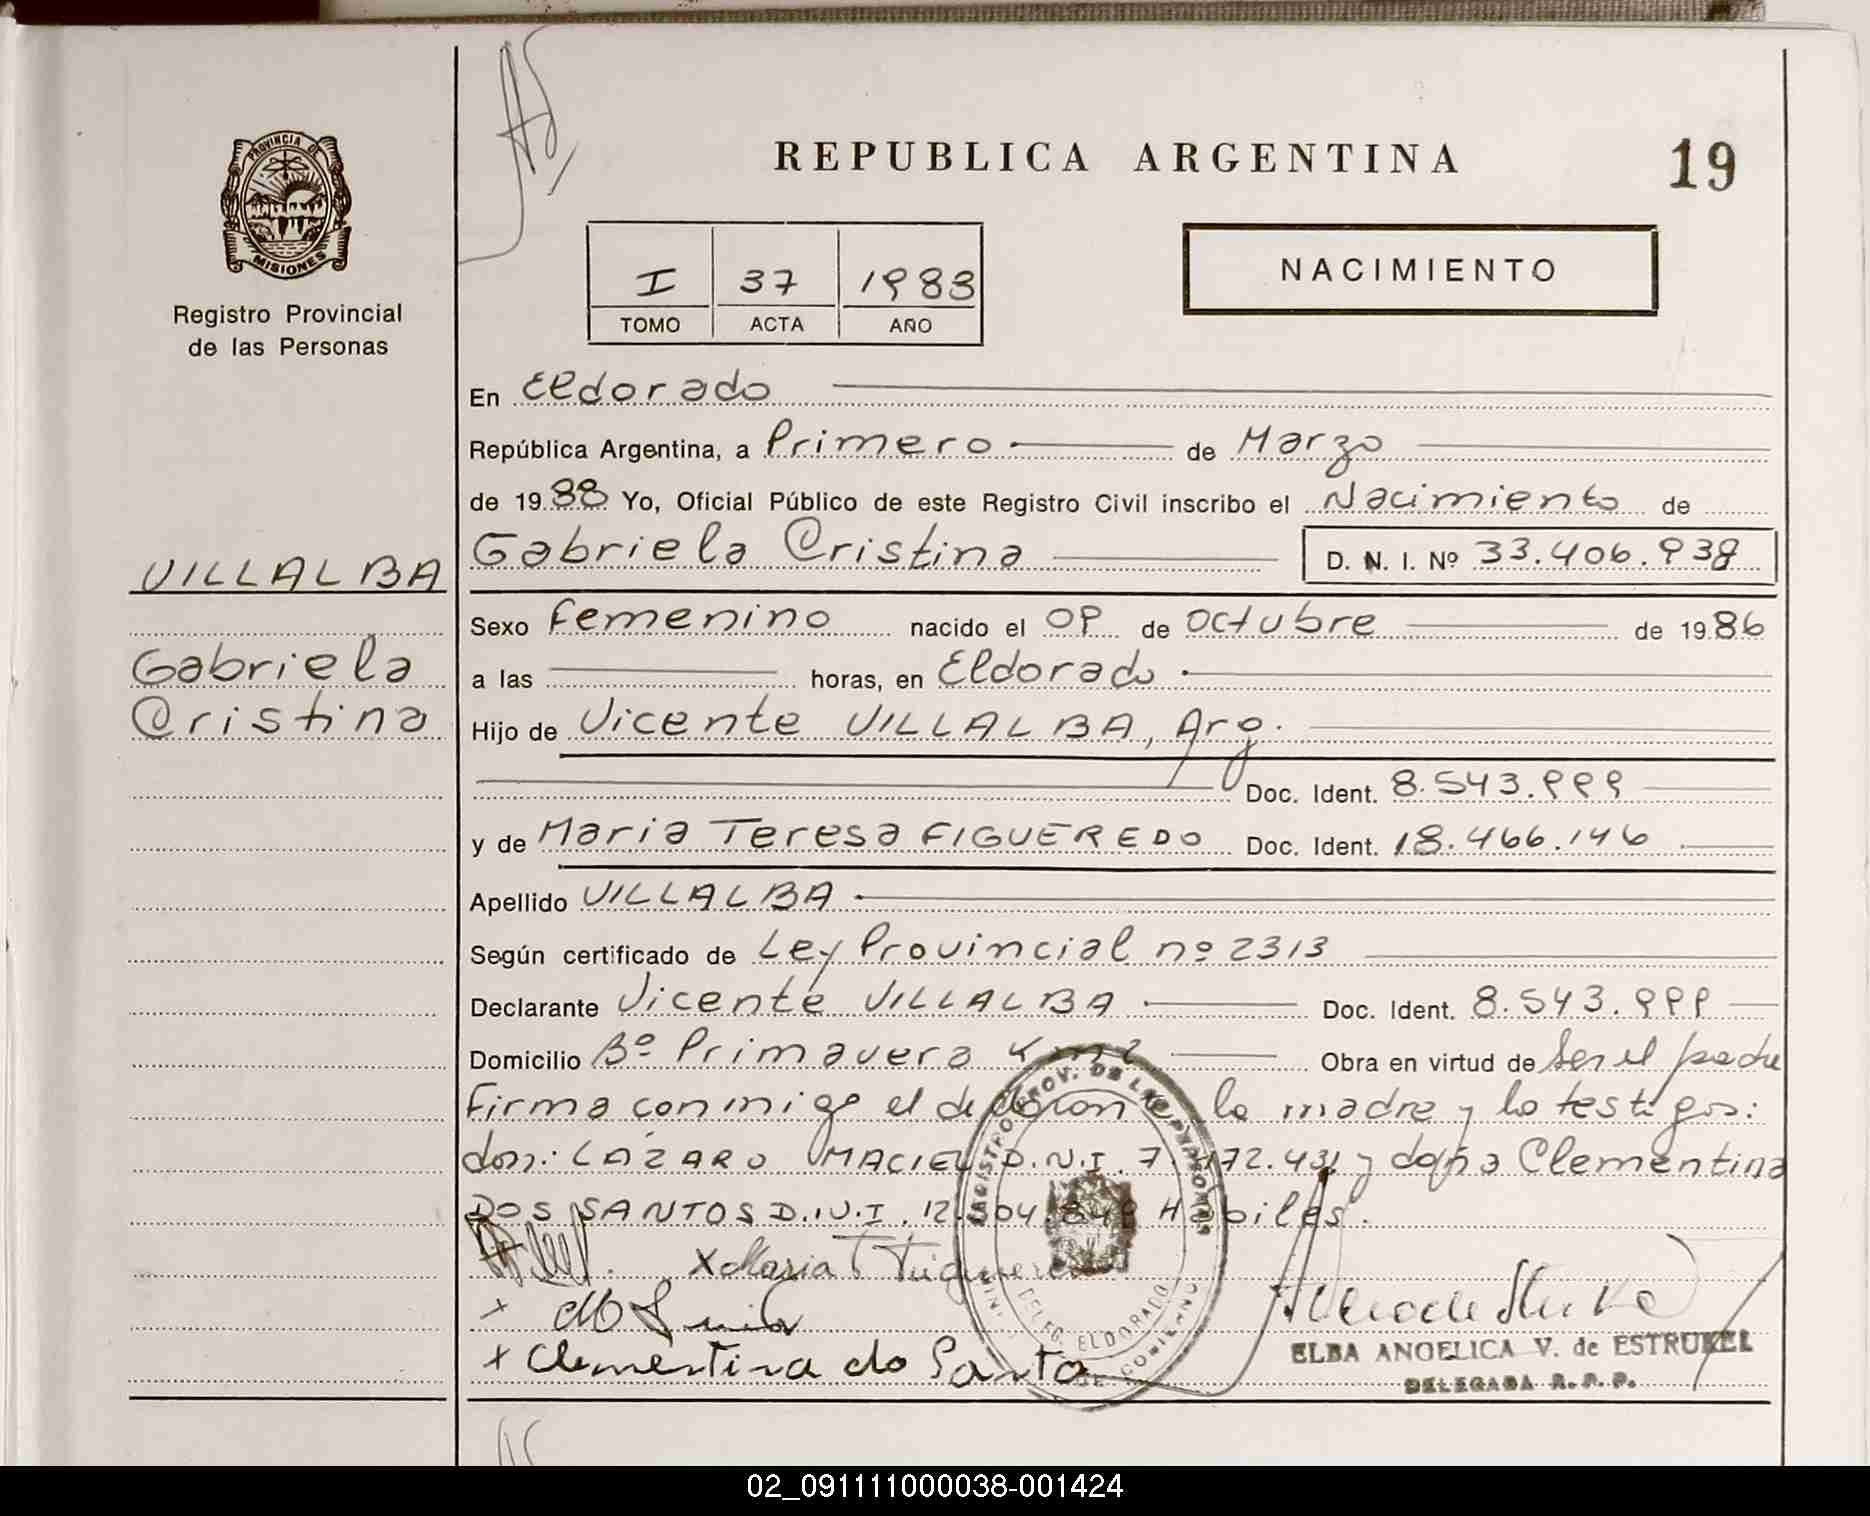 REPUBLICA ARGENTINA
19
PROVINCIA DE
MISIONES
Registro Provincial
de las Personas
I 37 1988
TOMO ACTA AÑO
NACIMIENTO
En Eldorado
República Argentina, a Primero de Marzo
de 1988 Yo, Oficial Público de este Registro Civil inscribo el Nacimiento de
VILLALBA
Gabriela Cristina D. N. I. Nº 33.406.938
Sexo Femenino nacido el 09 de Octubre de 1986
Gabriela
a las horas, en Eldorado
Cristina
Hijo de Vicente VILLALBA, Arg.
Doc. Ident. 8.543.999
y de Maria Teresa FIGUEREDO Doc. Ident. 18.466.146
Apellido VILLALBA
Según certificado de Ley Provincial nº 2313
Declarante Vicente VILLALBA Doc. Ident. 8.543.999
Domicilio Bº Primavera Obra en virtud de Ser el padre
Firma conmigo el la madre y lo testigos:
don: LAZARO MACIEL D.N.I. 7. 172.431 y doña Clementina
DOS SANTOS D.N.I. 12.504.
x Maria T
x
x Clementina do Santo
DELEG. ELDORADO
ELBA ANGELICA V. de ESTRUKEL
DELEGADA R. P. P.
02_091111000038-001424